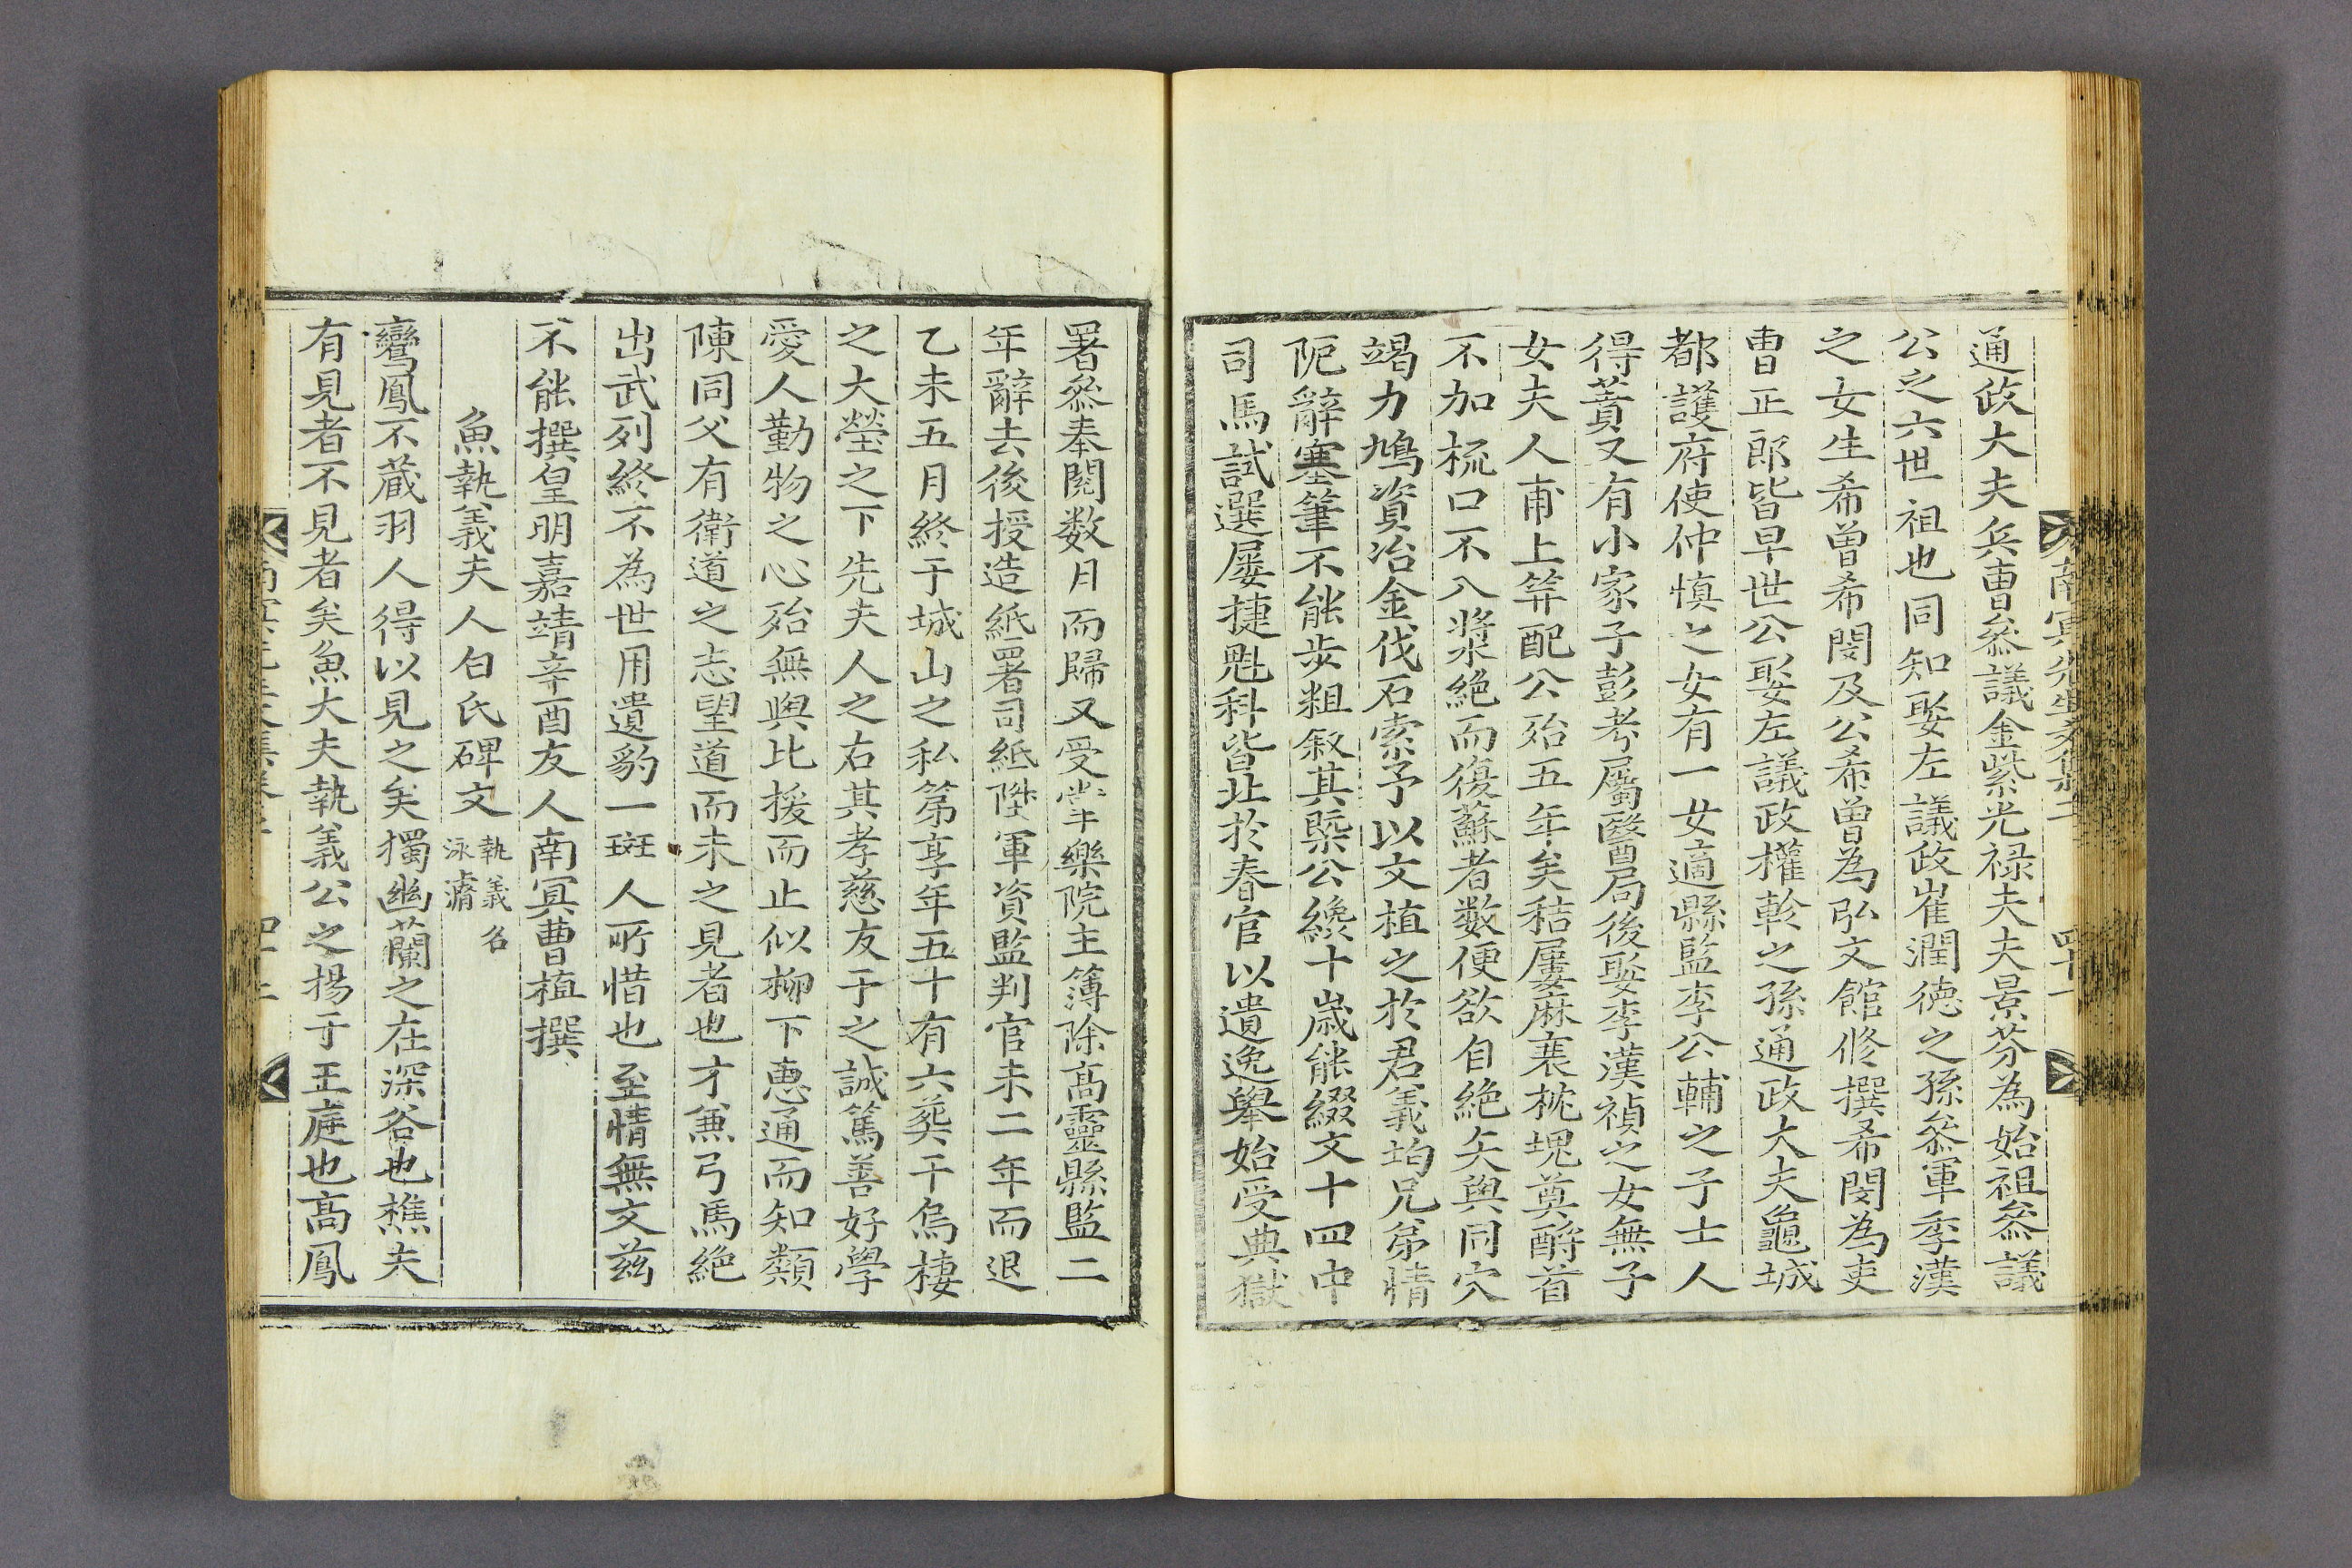 通政大夫兵曺叅議金紫光禄大夫景芬為始祖叅議
公之六世祖也同知娶左議政崔潤德之孫叅軍季漢
之女生希曽希閔及公希曽為弘文館修撰希閔為吏
曺正郎皆早世公娶左議政權軫之孫通政大夫龜城
都護府使仲愼之女有一女適縣監李公輔之子士人
得蕡又有小家子彭考屬醫局後娶李漢禎之女無子
女夫人甫上笄配公殆五年矣秸屨麻衰枕塊奠酹首
不加梳口不入漿絶而復蘇者數便欲自絶矢與同穴
竭力鳩資冶金伐石索予以文植之於君義均兄弟情
阨辭塞筆不能步粗叙其槩公纔十歳能綴文十四中
司馬試選屢捷魁科皆北於春官以遺逸擧始受典獄
署叅奉閱数月而歸又受掌樂院主簿除髙靈縣監二
年辭去後授造紙署司紙陞軍資監判官未二年而退
乙未五月終于城山之私第享年五十有六葬于烏棲
之大塋之下先夫人之右其孝慈友于之誠篤善好學
愛人勤物之心殆無與比援而止似柳下惠通而知類
陳同父有衛道之志望道而未之見者也才兼弓馬絶
出武列終不為世用遺豹一斑人所惜也至情無文茲
不能撰皇明嘉靖辛酉友人南冥曹植撰
魚執義夫人白氏碑文 執義名泳濬
鸞鳳不蔵羽人得以見之矣獨幽蘭之在深谷也樵夫
有見者不見者矣魚大夫執義公之揚于王庭也髙鳳
南冥先生文集卷二
四十一